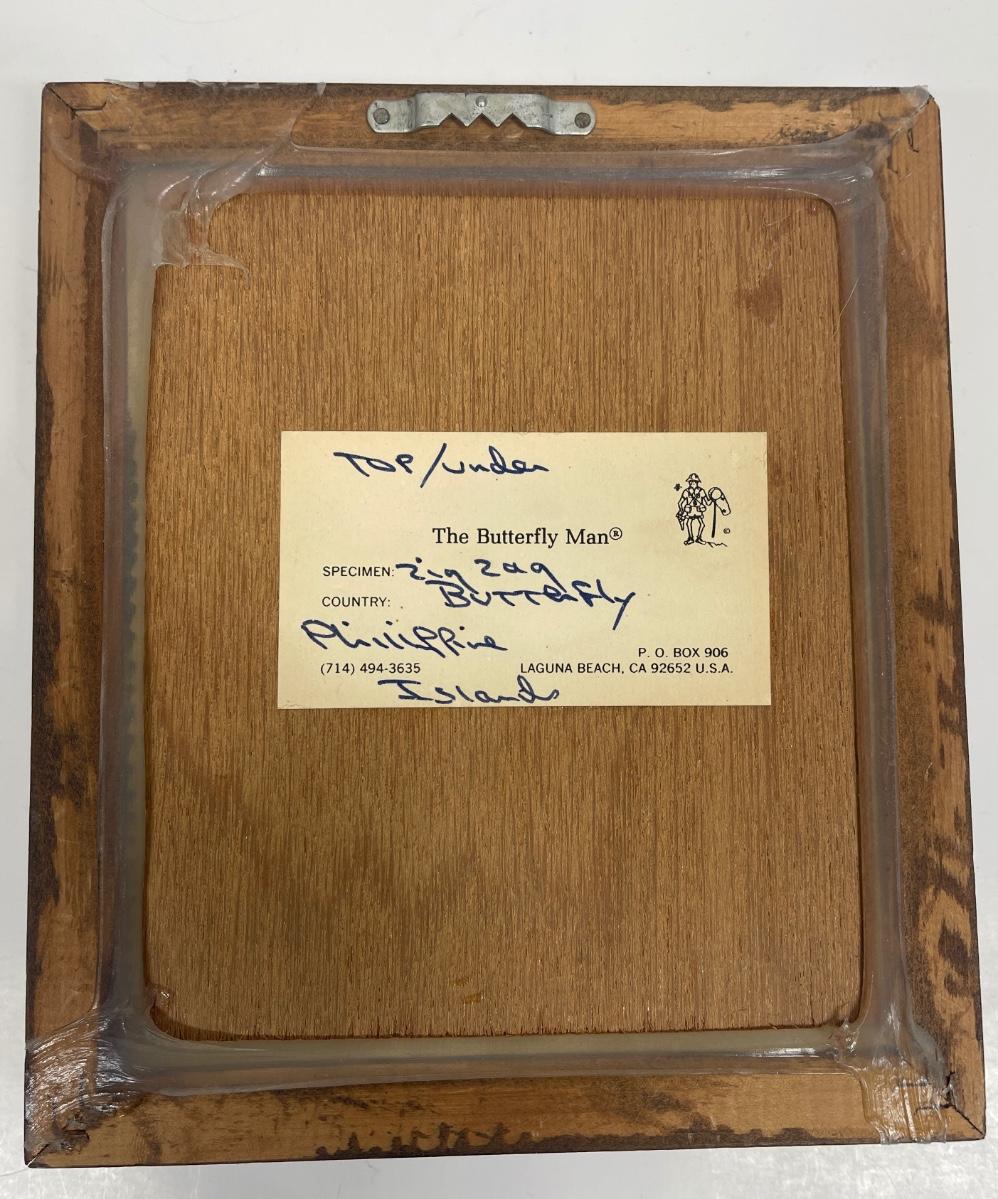 TOP/under
The Butterfly Man®
SPECIMEN: Zig Zag
COUNTRY: Butterfly
Phillippine
P. O. BOX 906
(714) 494-3635 LAGUNA BEACH, CA 92652 U.S.A.
Islands
©